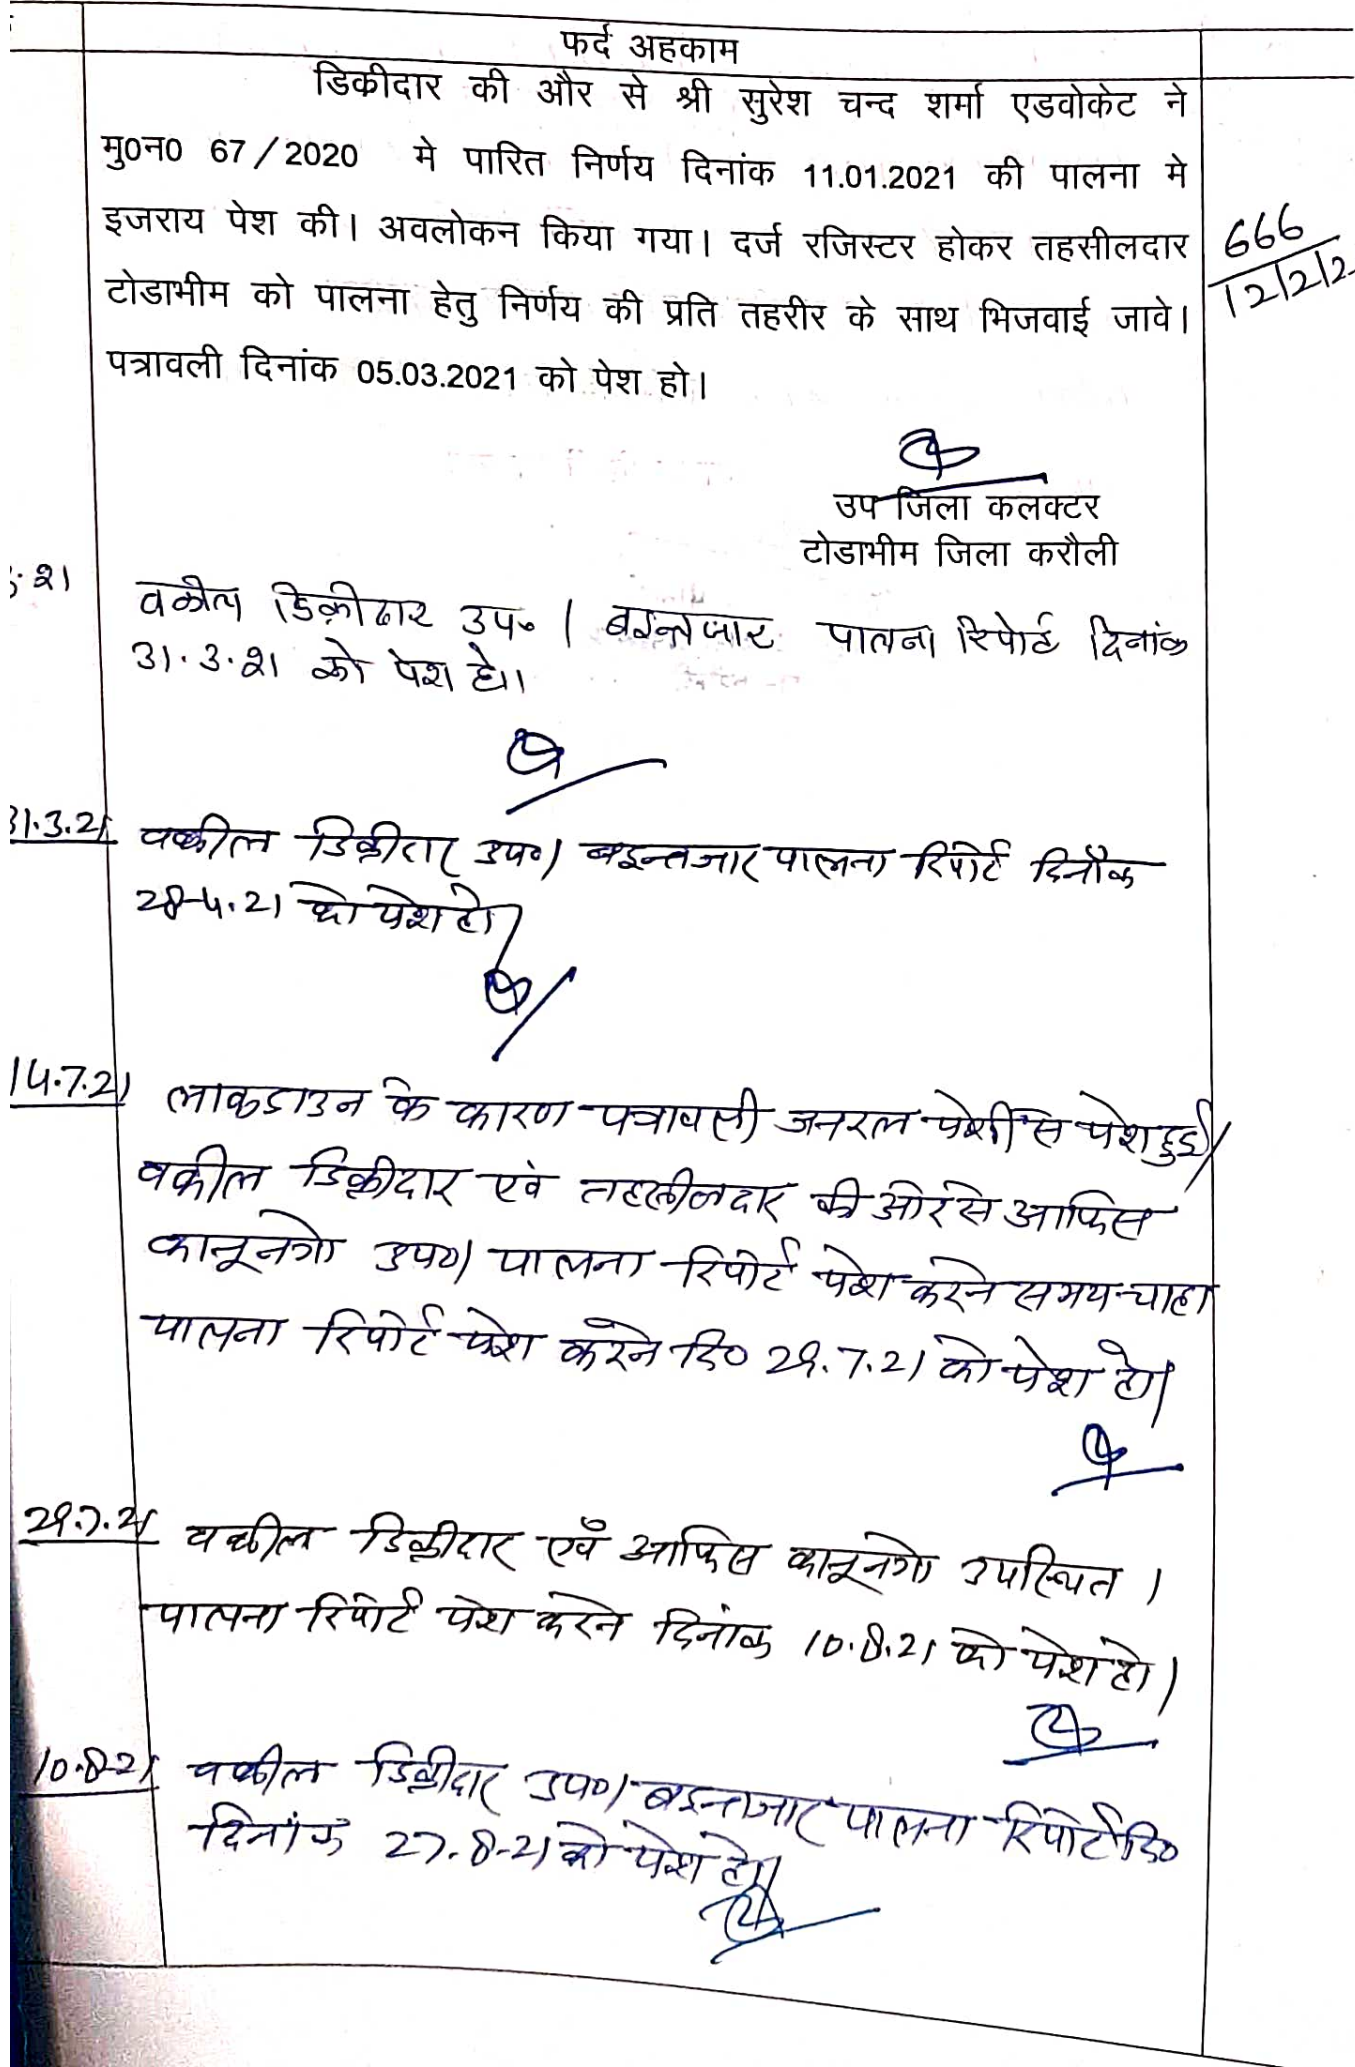 फर्द अहकाम
डिकीदार की और से श्री सुरेश चन्द शर्मा एडवोकेट ने
मु0न0 67/2020 मे पारित निर्णय दिनांक 11.01.2021 की पालना मे
इजराय पेश की। अवलोकन किया गया। दर्ज रजिस्टर होकर तहसीलदार
टोडाभीम को पालना हेतु निर्णय की प्रति तहरीर के साथ भिजवाई जावे।
पत्रावली दिनांक 05.03.2021 को पेश हो।
666
12/2/2
उप जिला कलक्टर
टोडाभीम जिला करौली
.21 वकील डिक्रीदार उप॰। बइन्तजार पालना रिपोर्ट दिनांक
31.3.21 को पेश हो।
31.3.21 वकील डिक्रीदार उप०। बइन्तजार पालना रिपोर्ट दिनाँक
28-4.21 को पेश हो।
14.7.21 लाकडाउन के कारण पत्रावली जनरल पेशी से पेश हुई।
वकील डिक्रीदार एवं तहसीलदार की ओर से आफिस
कानूनगो उप०। पालना रिपोर्ट पेश करने समय चाहा
पालना रिपोर्ट पेश करने दि० 29.7.21 को पेश हो।
29.7.21 वकील डिक्रीदार एवँ आफिस कानूनगो उपस्थित।
पालना रिपोर्ट पेश करने दिनांक 10.8.21 को पेश हो।
10.8-21 वकील डिक्रीदार उप०। बइन्तजार पालना रिपोर्ट दि०
दिनांक 27.8-21 को पेश हो।